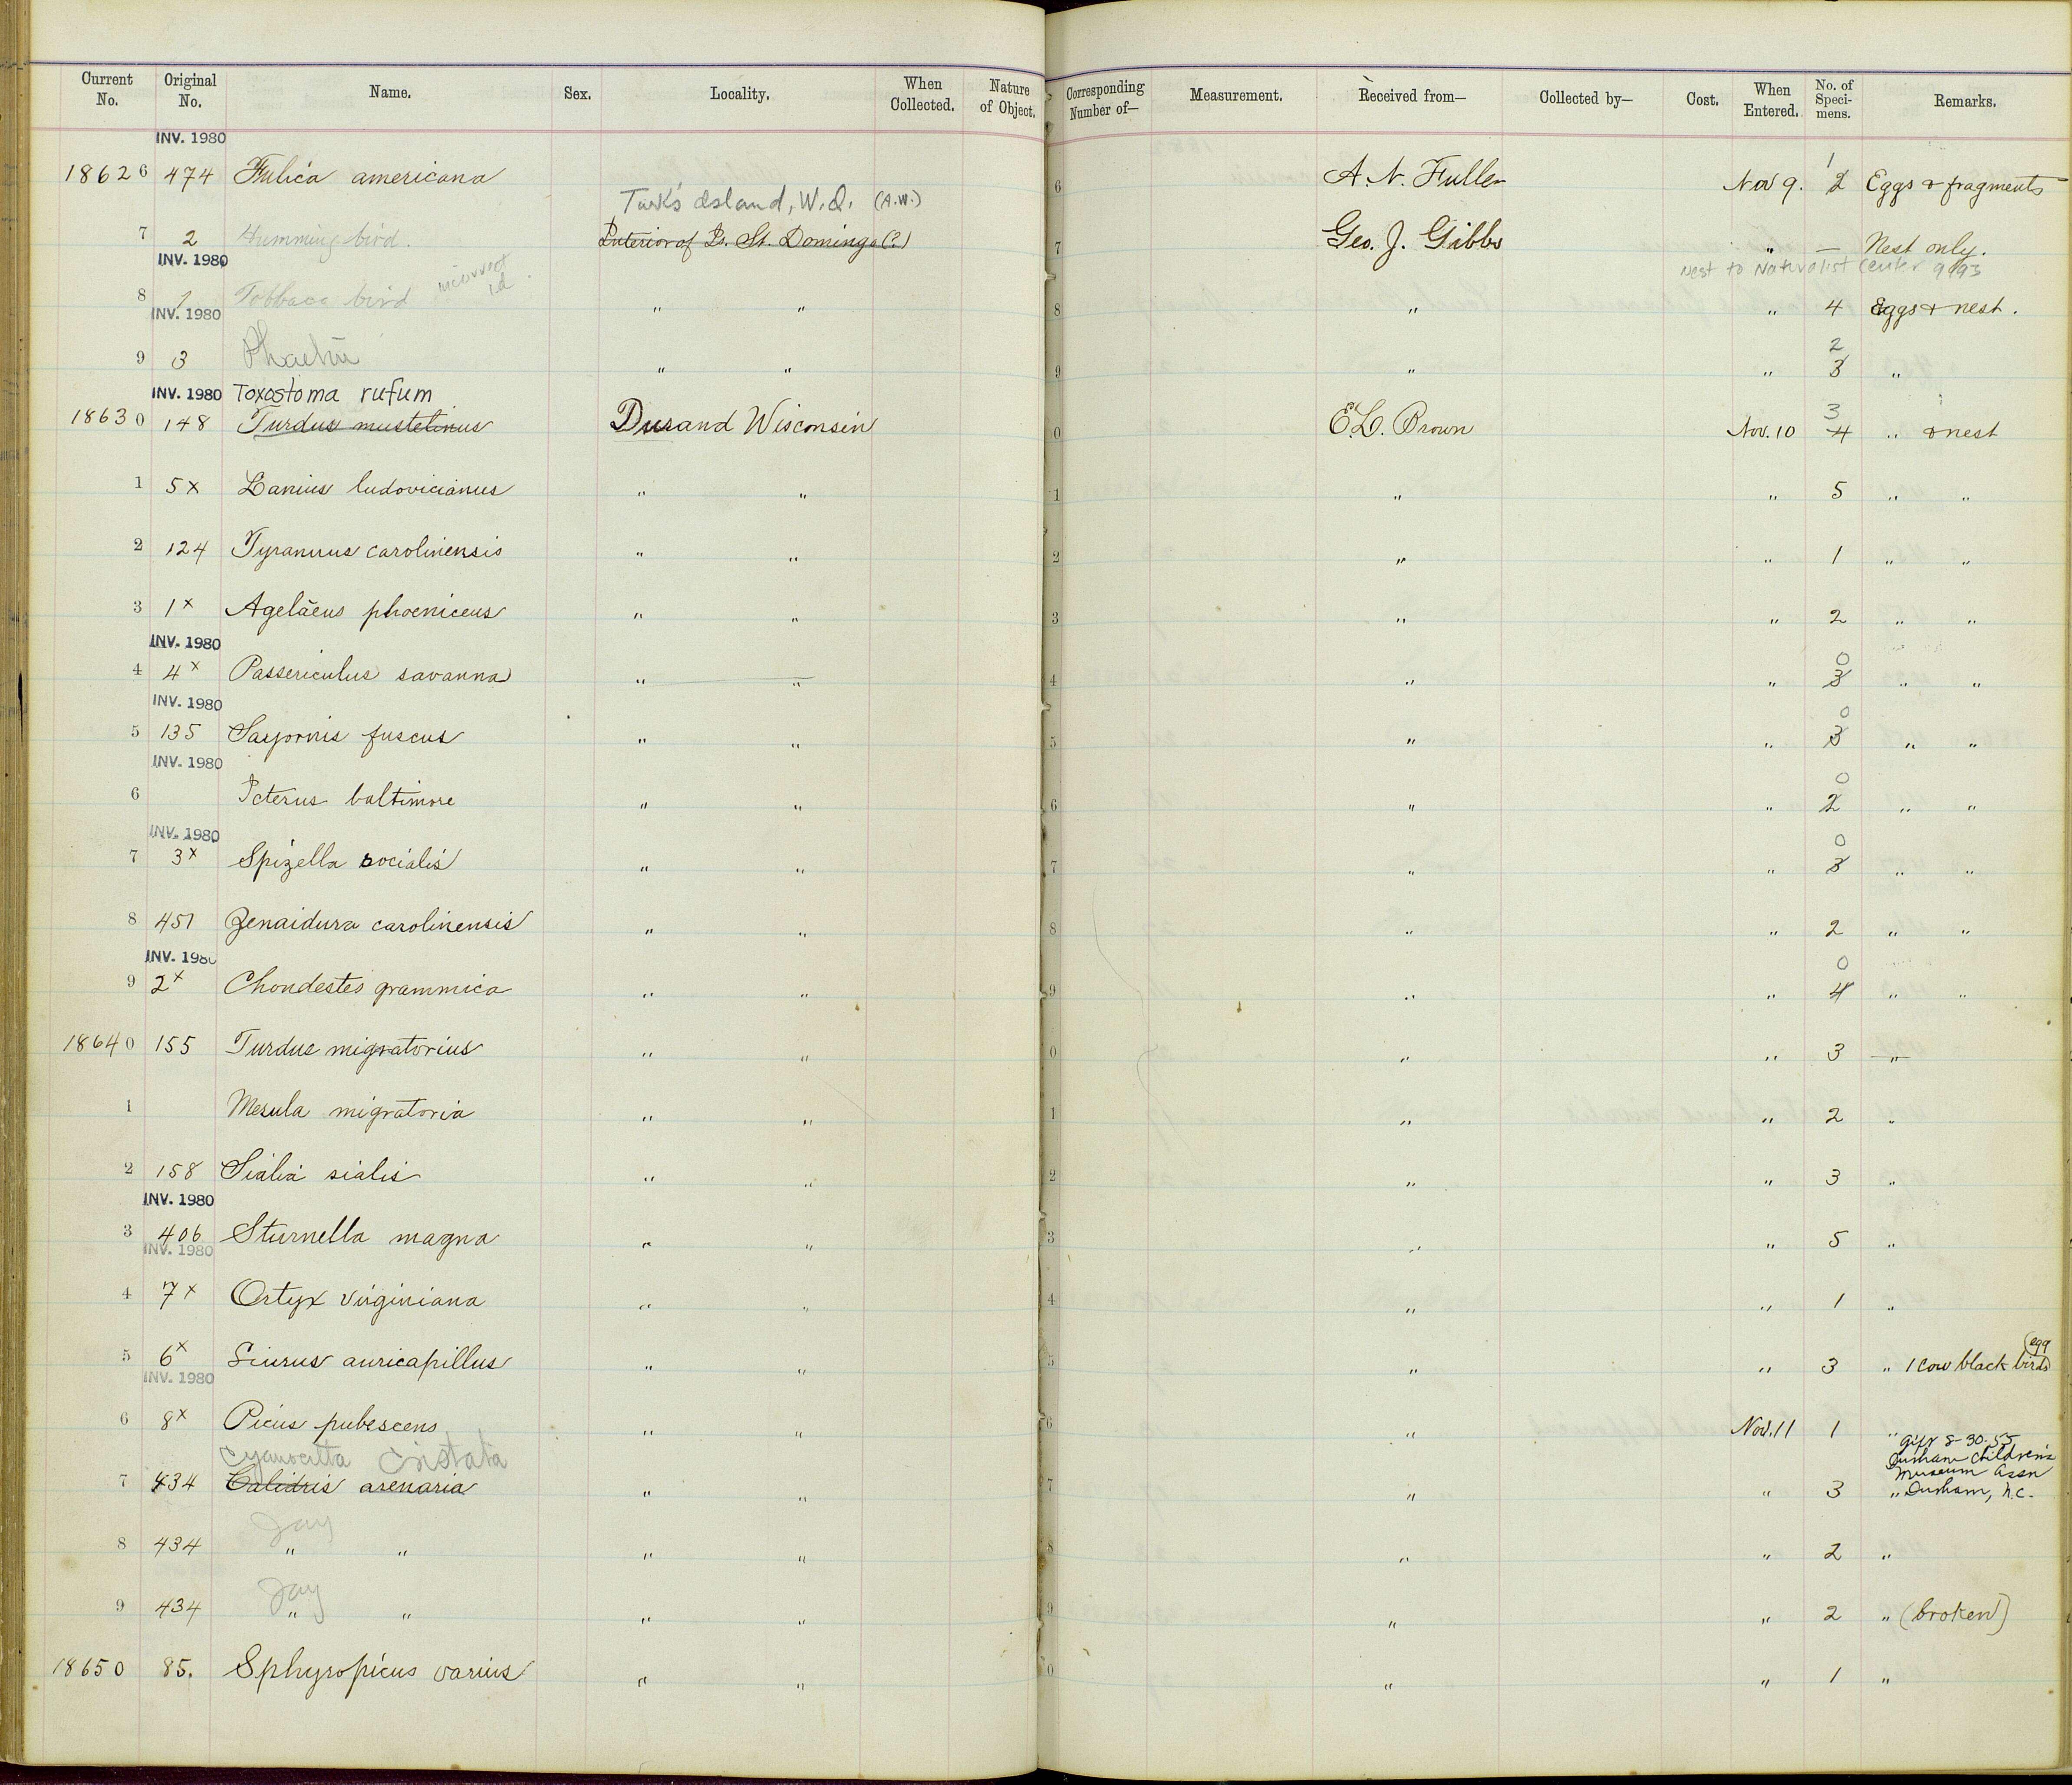 Current No. Original No. Name. Sex. Locality. When Collected. Nature of Object. Corresponding Number of— Measurement. Received from— Collected by— Cost. When Entered. No. of Speci-mens. Remarks.
INV. 1980
1
18626 474 Fulica americana 6 A. N. Fuller Nov 9. 2 Eggs & fragments
Turk's Island, W.I. (A.W.)
7 2 Hummingbird. Interior of Is. St. Domingo (?) 7 Geo. J. Gibbs " — Nest only.
INV. 1980 incorrect id. Nest to Naturalist Center 9/93
8 1 Tobbacc bird " " 8 " " 4 Eggs & nest.
INV. 1980
2
9 3 " " 9 " " 3 "
INV. 1980 Toxostoma rufum
3
18630 148 Turdus mustelinus Durand Wisconsin 0 E. L. Brown Nov. 10 4 " & nest
1 5x Lanius ludovicianus " " 1 " " 5 " "
2 124 Tyrannus carolinensis " " 2 " " 1 " "
3 1x Agelaeus phoeniceus " " 3 " " 2 " "
INV. 1980
0
4 4x Passericulus savanna " " 4 " " 3 " "
INV. 1980
0
5 135 Sayornis fuscus " " 5 " " 3 " "
INV. 1980
0
6 Icterus baltimore " " 6 " " 2 " "
INV. 1980
0
7 3x Spizella socialis " " 7 " " 3 " "
8 451 Zenaidura carolinensis " " 8 " " 2 " "
INV. 1980
0
9 2x Chondestes grammica " " 9 " " 4 " "
18640 155 Turdus migratorius " " 0 " " 3 "
1 Merula migratoria " " 1 " " 2 "
2 158 Sialia sialis " " 2 " " 3 "
INV. 1980
3 406 Sturnella magna " " 3 " " 5 "
INV. 1980
4 7x Ortyx virginiana " " 4 " " 1 "
egg
5 6x Siurus auricapillus " " 5 " " 3 " 1 cow black birds
INV. 1980
6 8x Picus pubescens " " 6 " Nov. 11 1 "
Cyanocitta cristata gift 8-30-55
Durham Children's
Museum Assn
7 434 Calidris arenaria " " 7 " " 3 " Durham, N.C.
Jay
8 434 " " " " 8 " " 2 "
Jay
9 434 " " " " 9 " " 2 " (broken)
18650 85. Sphyropicus varius " " 0 " " 1 "